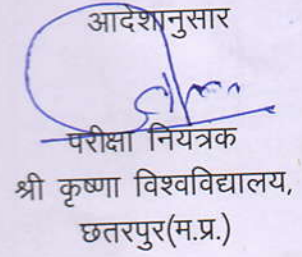 आदेशानुसार
परीक्षा नियत्रक
श्री कृष्णा विश्वविद्यालय,
छतरपुर(म.प्र.)